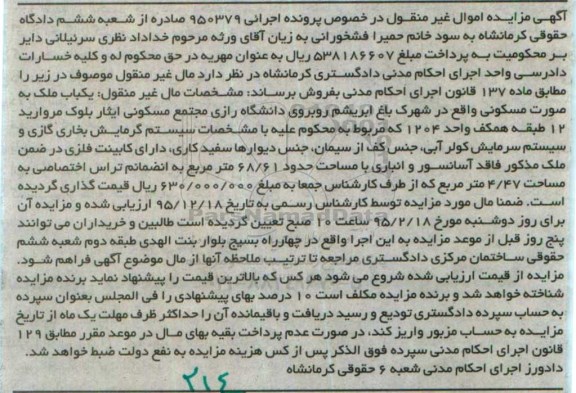 آگهی مزایده اموال غیر منقول در خصوص پرونده اجرائی ۹۵۰۳۷۹ صادره از شعبه ششم دادگاه
حقوقی کرمانشاه به سود خانم حمیرا فشخورانی به زیان آقای ورثه مرحوم خداداد نظری سرنیلانی دایر
بر محکومیت به پرداخت مبلغ ۵۳۸۱۸۶۶۰۷ ریال به عنوان مهریه در حق محکوم له و کلیه خسارات
دادرسی واحد اجرای احکام مدنی دادگستری کرمانشاه در نظر دارد مال غیر منقول موصوف در زیر را
مطابق ماده ۱۳۷ قانون اجرای احکام مدنی بفروش برساند: مشخصات مال غیر منقول: یکباب ملک به
صورت مسکونی واقع در شهرک باغ ابریشم روبروی دانشگاه رازی مجتمع مسکونی ایثار بلوک مروارید
۱۲ طبقه همکف واحد ۱۲۰۴ که مربوط به محکوم علیه با مشخصات سیستم گرمایش بخاری گازی و
سیستم سرمایش کولر آبی، جنس کف از سیمان، جنس دیوارها سفید کاری، دارای کابینت فلزی در ضمن
ملک مذکور فاقد آسانسور و انباری با مساحت حدود ۶۸/۶۱ متر مربع به انضمام تراس اختصاصی به
مساحت ۴/۴۷ متر مربع که از طرف کارشناس جمعا به مبلغ ۶۳۰/۰۰۰/۰۰۰ ریال قیمت گذاری گردیده
است. ضمنا مال مورد مزایده توسط کارشناس رسمی به تاریخ ۹۵/۱۲/۱۸ ارزیابی شده و مزایده آن
برای روز دوشنبه مورخ ۹۵/۲/۱۸ ساعت ۱۰ صبح تعیین گردیده است طالبین و خریداران می توانند
پنج روز قبل از موعد مزایده به این اجرا واقع در چهارراه بسیج بلوار بنت الهدی طبقه دوم شعبه ششم
حقوقی ساختمان مرکزی دادگستری مراجعه تا ترتیب ملاحظه آنها از مال موضوع آگهی فراهم شود.
مزایده از قیمت ارزیابی شده شروع می شود هر کس که بالاترین قیمت را پیشنهاد نماید برنده مزایده
شناخته خواهد شد و برنده مزایده مکلف است ۱۰ درصد بهای پیشنهادی را فی المجلس بعنوان سپرده
به حساب سپرده دادگستری تودیع و رسید دریافت و باقیمانده آن را حداکثر ظرف مهلت یک ماه از تاریخ
مزایده به حساب مزبور واریز کند، در صورت عدم پرداخت بقیه بهای مال در موعد مقرر مطابق ۱۲۹
قانون اجرای احکام مدنی سپرده فوق الذکر پس از کس هزینه مزایده به نفع دولت ضبط خواهد شد.
دادورز اجرای احکام مدنی شعبه ۶ حقوقی کرمانشاه
۲۱۴